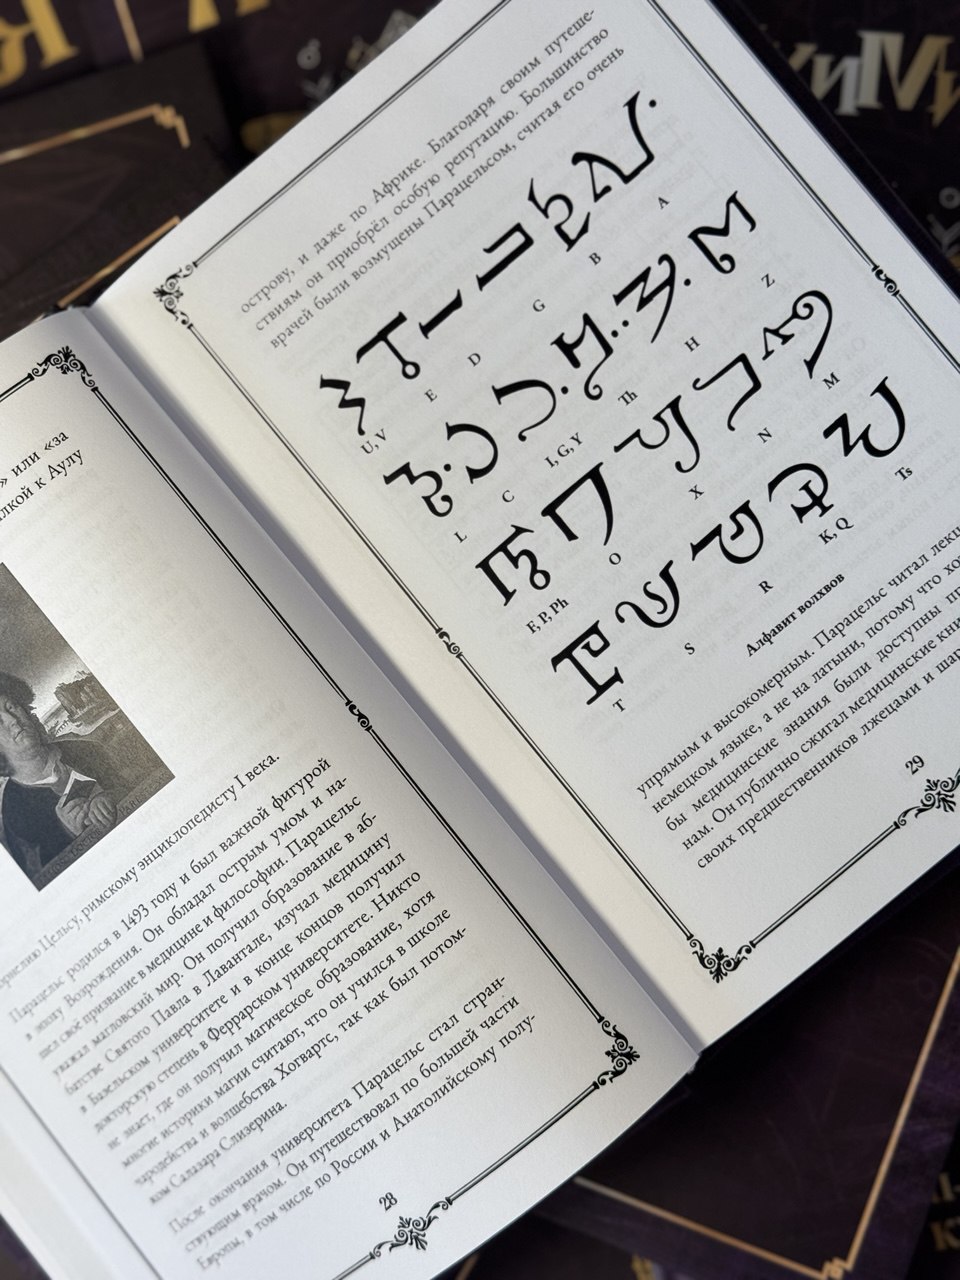 » или «за
лкой к Аулу
Цельсу, римскому энциклопедисту I века.
Парацельс родился в 1493 году и был важной фигурой
в эпоху Возрождения. Он обладал острым умом и на-
шел своё призвание в медицине и философии. Парацельс
уважал магловский мир. Он получил образование в аб-
батстве Святого Павла в Лавантале, изучал медицину
в Базельском университете и в конце концов получил
докторскую степень в Феррарском университете. Никто
не знает, где он получил магическое образование, хотя
многие историки магии считают, что он учился в школе
чародейства и волшебства Хогвартс, так как был потом-
ком Салазара Слизерина.
После окончания университета Парацельс стал стран-
ствующим врачом. Он путешествовал по большей части
Европы, в том числе по России и Анатолийскому полу-
28
острову, и даже по Африке. Благодаря своим путеше-
ствиям он приобрёл особую репутацию. Большинство
врачей были возмущены Парацельсом, считая его очень
U, V E D G B A
L C I, G, Y Th H Z
F, P, Ph O X N M
T S R K, Q Ts
Алфавит волхвов
упрямым и высокомерным. Парацельс читал
немецком языке, а не на латыни, потому что
бы медицинские знания были доступны
нам. Он публично сжигал медицинские
своих предшественников лжецами и
29